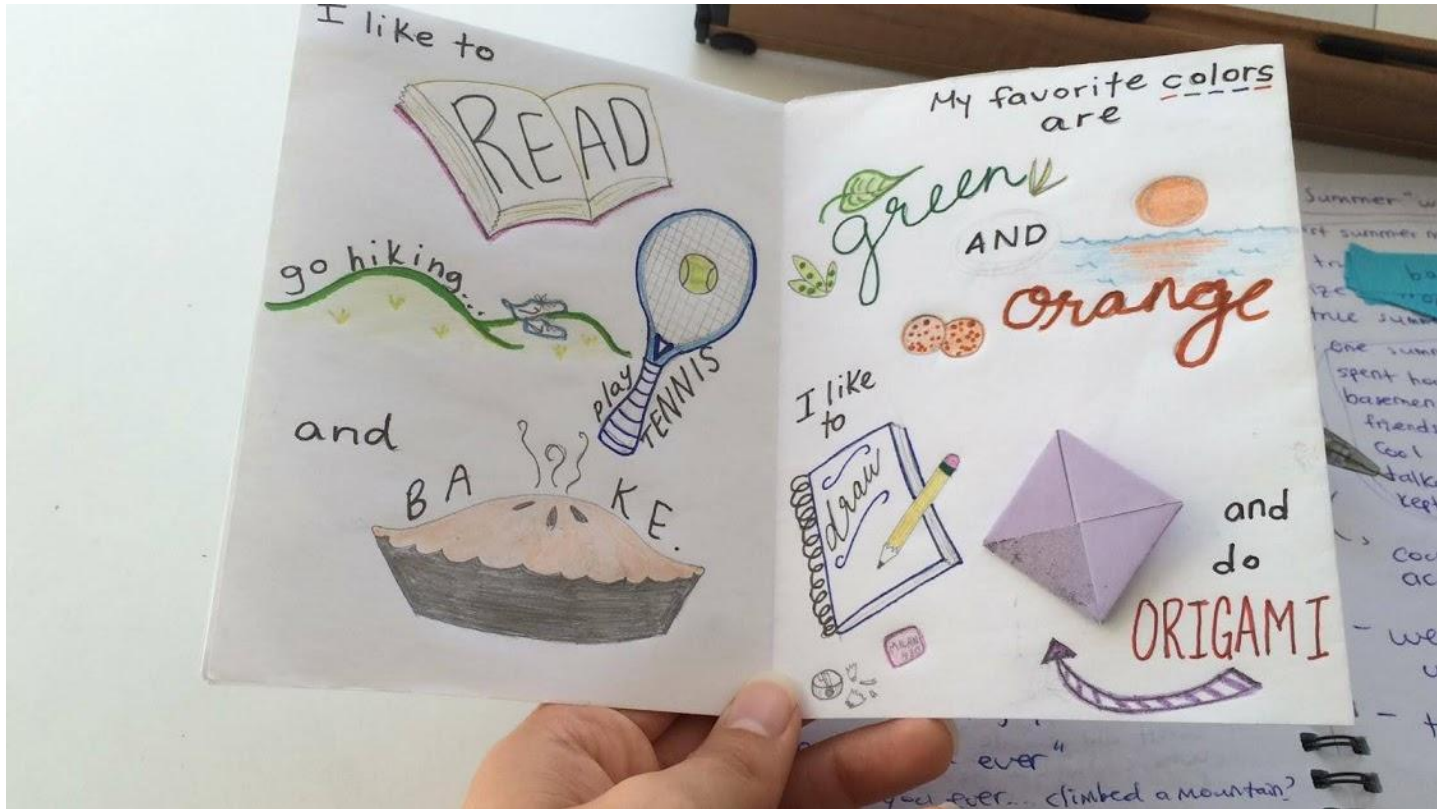 I like to
READ
go hiking...
play
TENNIS
and
BAKE.
My favorite colors
are
green
AND
orange
I like
to
draw
and
do
ORIGAMI
MILAN
Summer "w
summer
one summ
spent ho
basemen
friends
Cool
talk
kept
coo
ac
- we
u
- t
ever"
you ever... climbed a mountain?